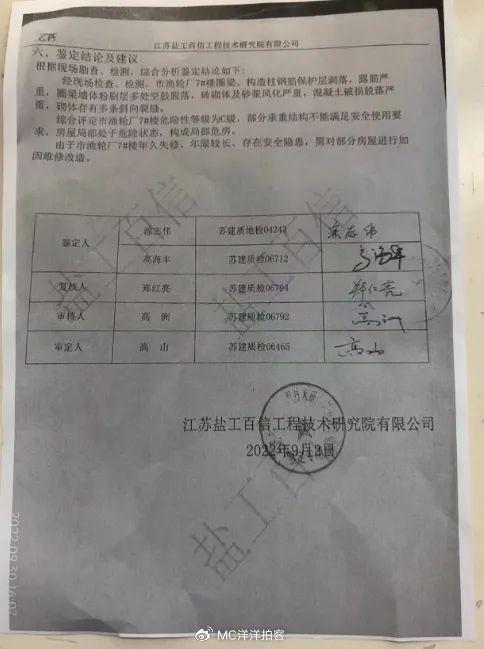 江苏盐工百信工程技术研究院有限公司
六、鉴定结论及建议
根据现场勘查、检测，综合分析鉴定结论如下：
经现场检查、检测，市渔轮厂7#楼圈梁、构造柱钢筋保护层剥落，露筋严
重，圈梁墙体粉刷层多处空鼓脱落，砖砌体及砂浆风化严重，混凝土破损脱落严
重，砌体存有多条斜向裂缝。
综合评定市渔轮厂7#楼危险性等级为C级，部分承重结构不能满足安全使用要
求，房屋局部处于危险状态，构成局部危房。
由于市渔轮厂7#楼年久失修、年限较长、存在安全隐患，需对部分房屋进行加
固维修改造。
鉴定人 志伟 苏建质地检04243
高海丰 苏建质检06712
复核人 郑红亮 苏建质检06794 郑仁亮
审核人 高洲 苏建质检06792 高洲
审定人 高山 苏建质检06465 高山
江苏盐工百信工程技术研究院有限公司
2022年9月2日
盐工百信
盐工百信
盐工百信
2022.09.20 16:07
MC洋洋拍客